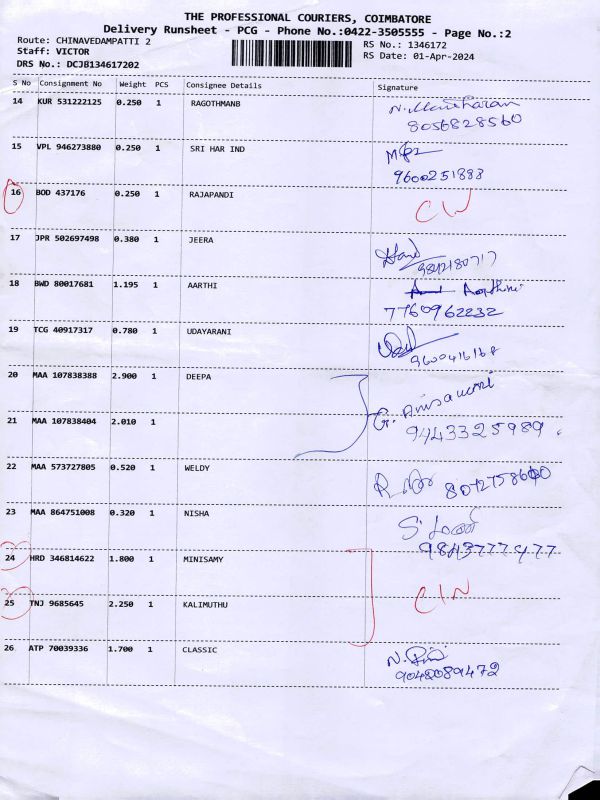 THE PROFESSIONAL COURIERS, COIMBATORE
Delivery Runsheet - PCG - Phone No.:0422-3505555 - Page No.:2
Route: CHINAVEDAMPATTI 2
RS No.: 1346172
Staff: VICTOR
RS Date: 01-Apr-2024
DRS No.: DCJB134617202
S No Consignment No Weight PCS Consignee Details Signature
14 KUR 531222125 0.250 1 RAGOTHMANB N. Manoharan
8056828560
15 VPL 946273880 0.250 1 SRI HAR IND
9600251888
16 BOD 437176 0.250 1 RAJAPANDI
17 JPR 502697498 0.380 1 JEERA
9842180717
18 BWD 80017681 1.195 1 AARTHI
7760962232
19 TCG 40917317 0.780 1 UDAYARANI
9600416168
20 MAA 107838388 2.900 1 DEEPA
21 MAA 107838404 2.010 1
9443325989
22 MAA 573727805 0.520 1 WELDY
23 MAA 864751008 0.320 1 NISHA
9843777477
24 HRD 346814622 1.800 1 MINISAMY
25 TNJ 9685645 2.250 1 KALIMUTHU
26 ATP 70039336 1.700 1 CLASSIC
9042089472